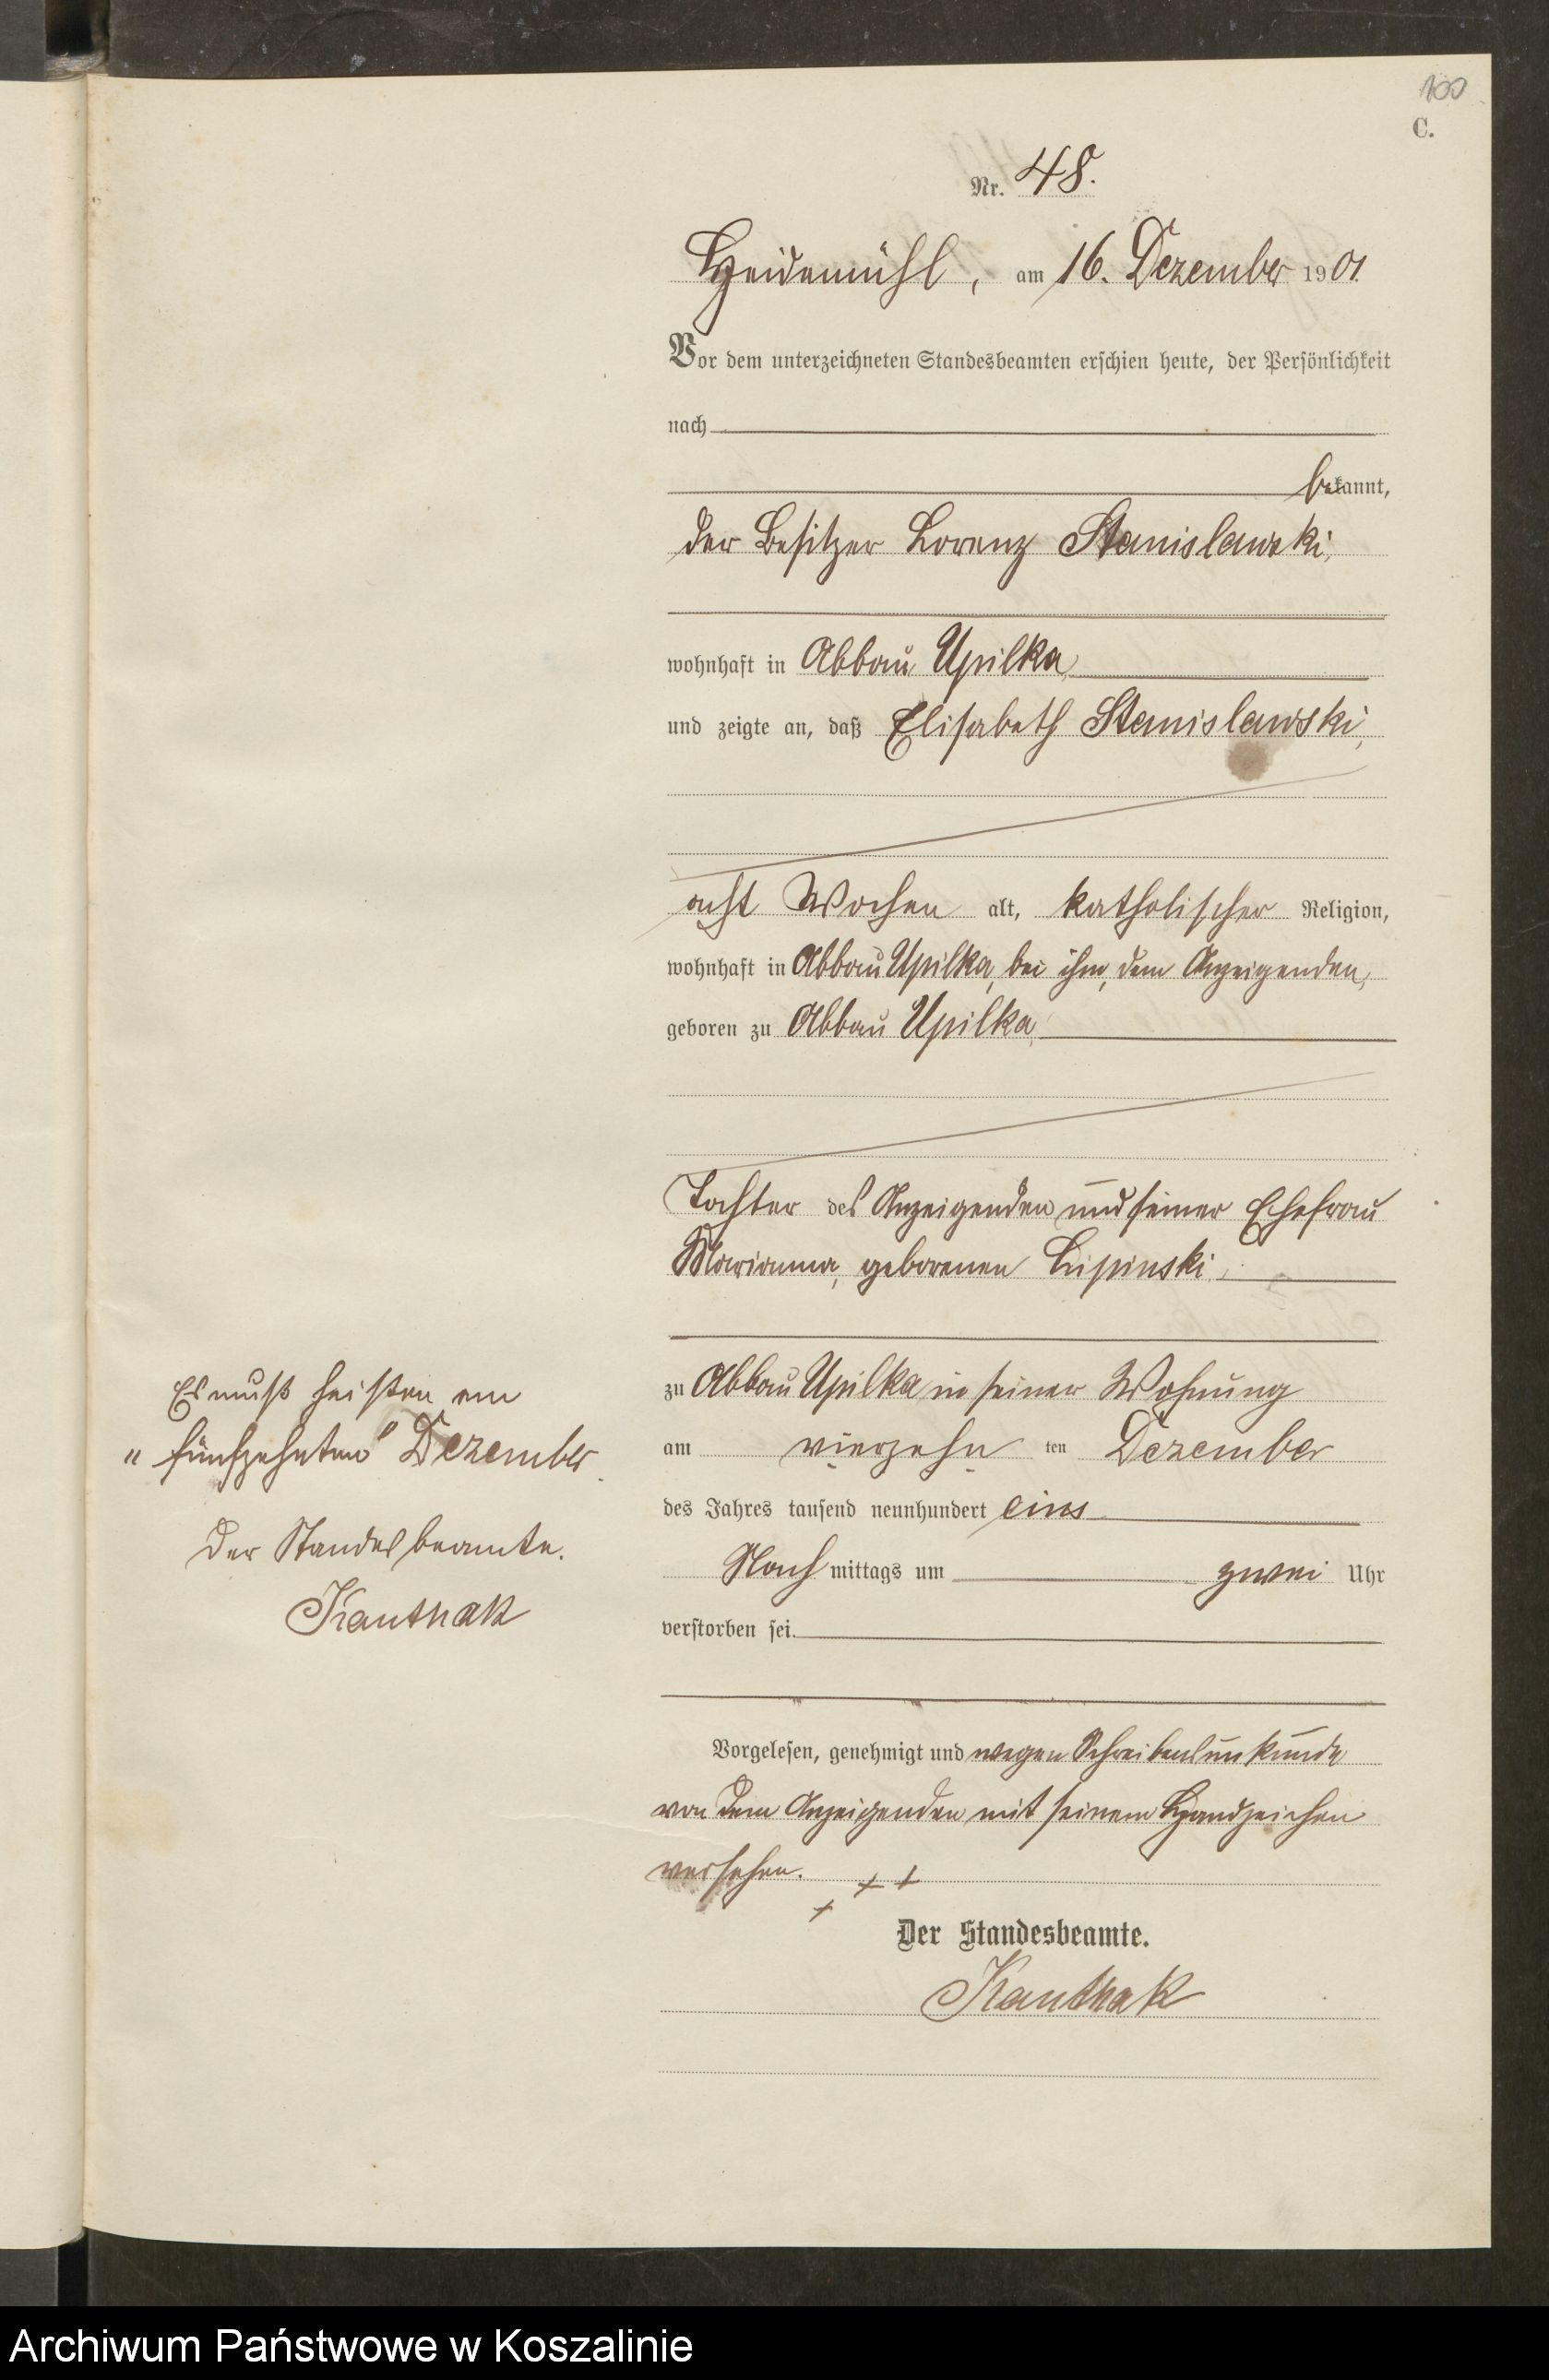 100
C.
Nr. 48.
Heidemühl, am 16. Dezember 1901.
Vor dem unterzeichneten Standesbeamten erschien heute, der Persönlichkeit
nach
bekannt,
der Besitzer Lorenz Stanislawski,
wohnhaft in Abbau Upilka,
und zeigte an, daß Elisabeth Stanislawski,
acht Wochen alt, katholischer Religion,
wohnhaft in Abbau Upilka, bei ihm, dem Anzeigenden,
geboren zu Abbau Upilka,
Tochter des Anzeigenden und seiner Ehefrau
Marianna, geborenen Lipinski,
zu Abbau Upilka in seiner Wohnung
am vierzehnten Dezember
des Jahres tausend neunhundert eins
Nachmittags um zwei Uhr
verstorben sei.
Vorgelesen, genehmigt und wegen Schreibensunkunde
von dem Anzeigenden mit seinem Handzeichen
versehen. + + +
Der Standesbeamte.
Kanthak
Es muß heißen am
"fünfzehnten" Dezember.
Der Standesbeamte.
Kanthak
Archiwum Państwowe w Koszalinie